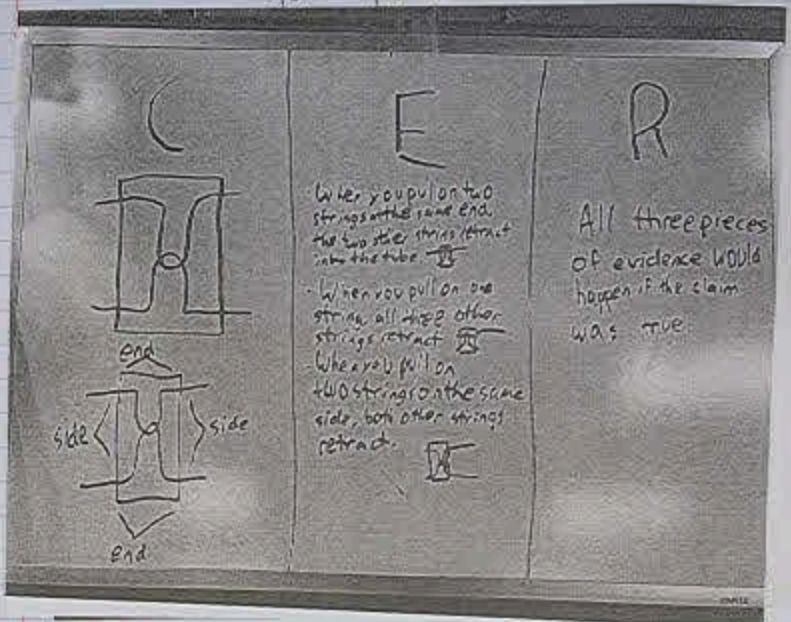 C
end
side
side
end
E
· When you pull on two
strings on the same end
the two other strings retract
into the tube
- When you pull on one
string, all three other
strings retract
- When you pull on
two strings on the same
side, both other strings
retract.
R
All three pieces
of evidence would
happen if the claim
was true.